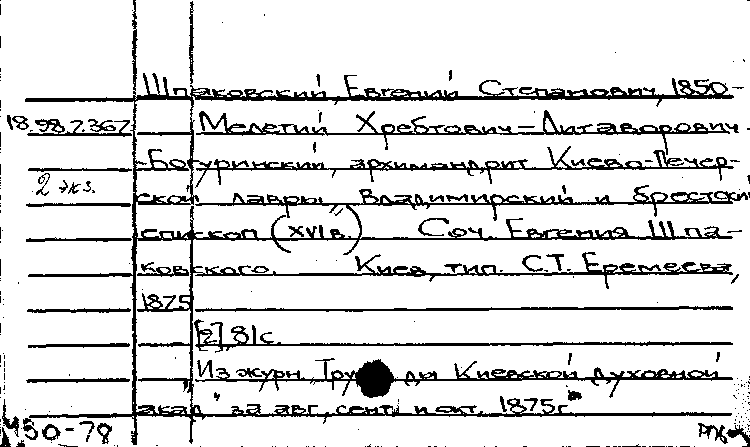 Шпаковский, Евгений Степанович, 1850-
18.98.7.367 Мелетий Хребтович-Литаворович-
-Богуринский, архимандрит Киево-Печер-
2 экз.
ской лавры, Владимирский и брестский
епископ (XVI в.) Соч. Евгения Шпа-
ковского. Киев, тип. С.Т. Еремеева,
1875
[2], 81 с.
Из журн. "Труды Киевской духовной
акад." за авг., сент. и окт. 1875г.
430-78